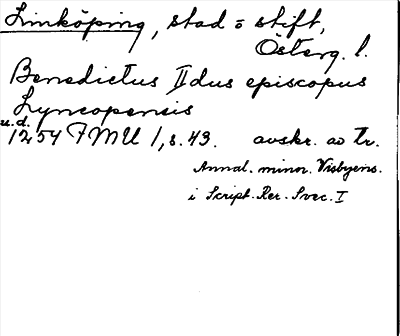 Linköping, stad o stift,
Österg. l.
Benedictus IIdus episcopus
Lyncopensis
u.d.
1254 FMU 1, s. 43. avskr. av tr.
Annal. minor. Visbyens.
i Script. Rer. Svec. I